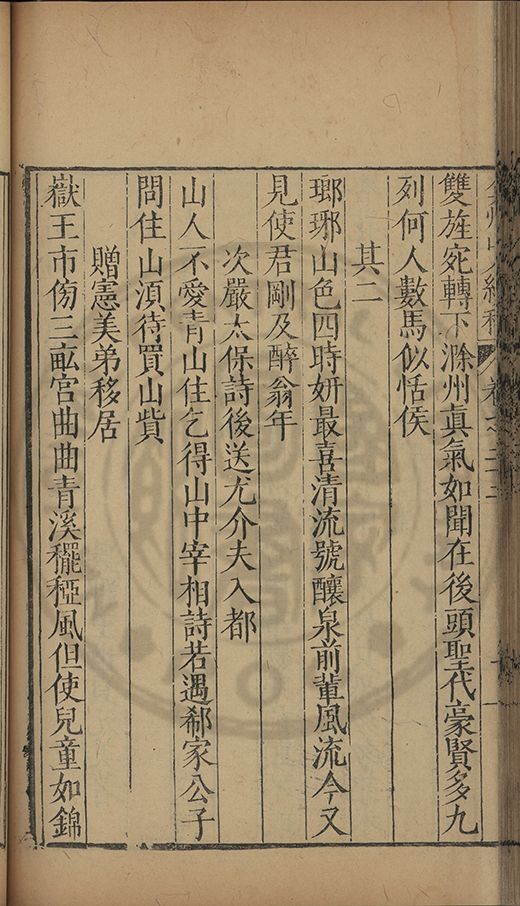 弇州山人續稿 卷之二十三
雙旌宛轉下滁州真氣如聞在後頭聖代豪賢多九
列何人數馬似恬侯
其二
瑯琊山色四時妍最喜清流號釀泉前輩風流今又
見使君剛及醉翁年
次嚴太保詩後送尤介夫入都
山人不愛青山住乞得山中宰相詩若遇郗家公子
問住山須待買山貲
贈憲美弟移居
嶽王市傍三畝宮曲曲青溪䆉稏風但使兒童如錦